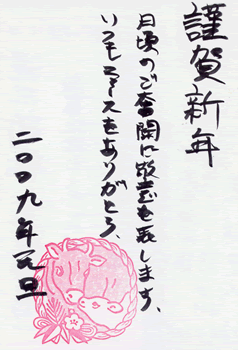 謹賀新年
日頃のご奮闘に敬意を表します、
いつもニュースをありがとう、
二〇〇九年元旦